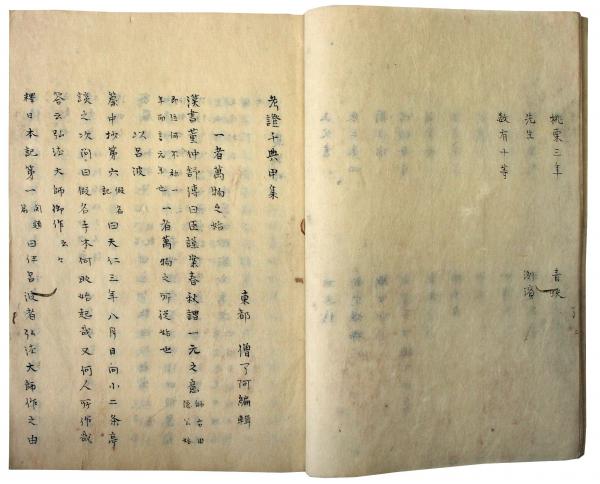 桃栗三年
先生
数有十等
青
考證千典甲集
東都 僧了阿編輯
一者萬物之始
漢書董仲舒傳曰臣謹案春秋謂一元之意 師古曰 隱公始
即位何不称一 年而言元年也 一者萬物之所従始也
以呂波
蔡中抄第六 假名 記 曰天仁三年八月日向小二条亭
談之次問曰假名手本何時始起哉又何人所作哉
答云弘法大師御作云々
釋日本記第一 開題 曰伊呂波者弘法大師作之由